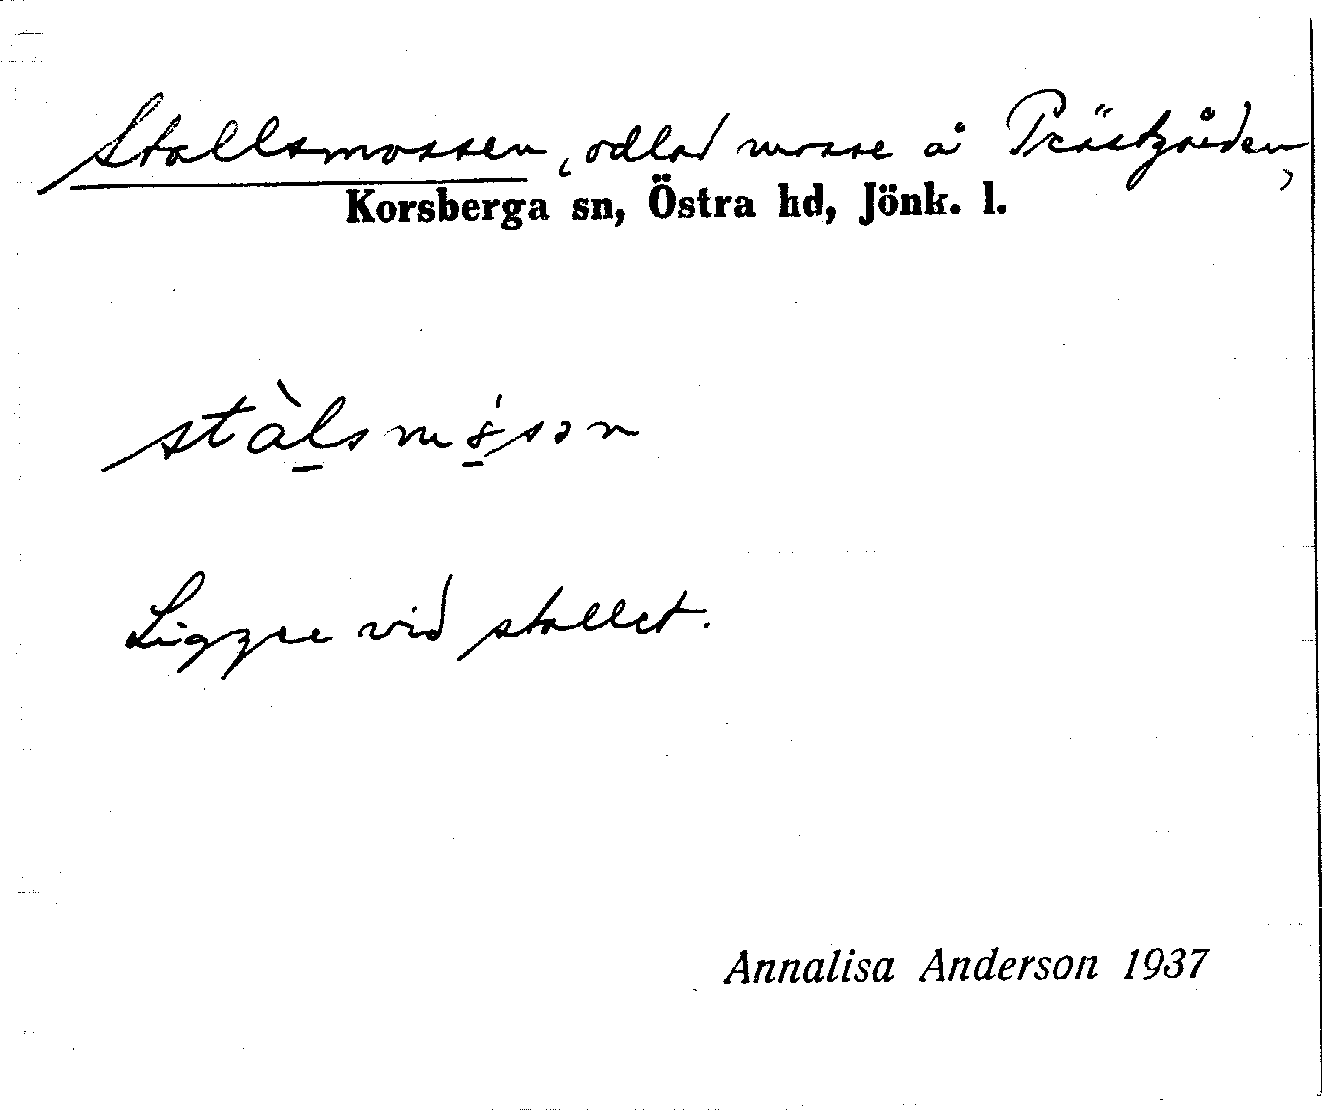 Stallsmossen, odlad mosse å Prästgården,
Korsberga sn, Östra hd, Jönk. l.
Ligger vid stallet.
Annalisa Anderson 1937